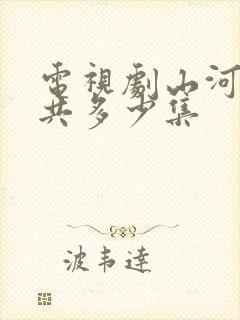 電視劇山河
共多少集
波韦達